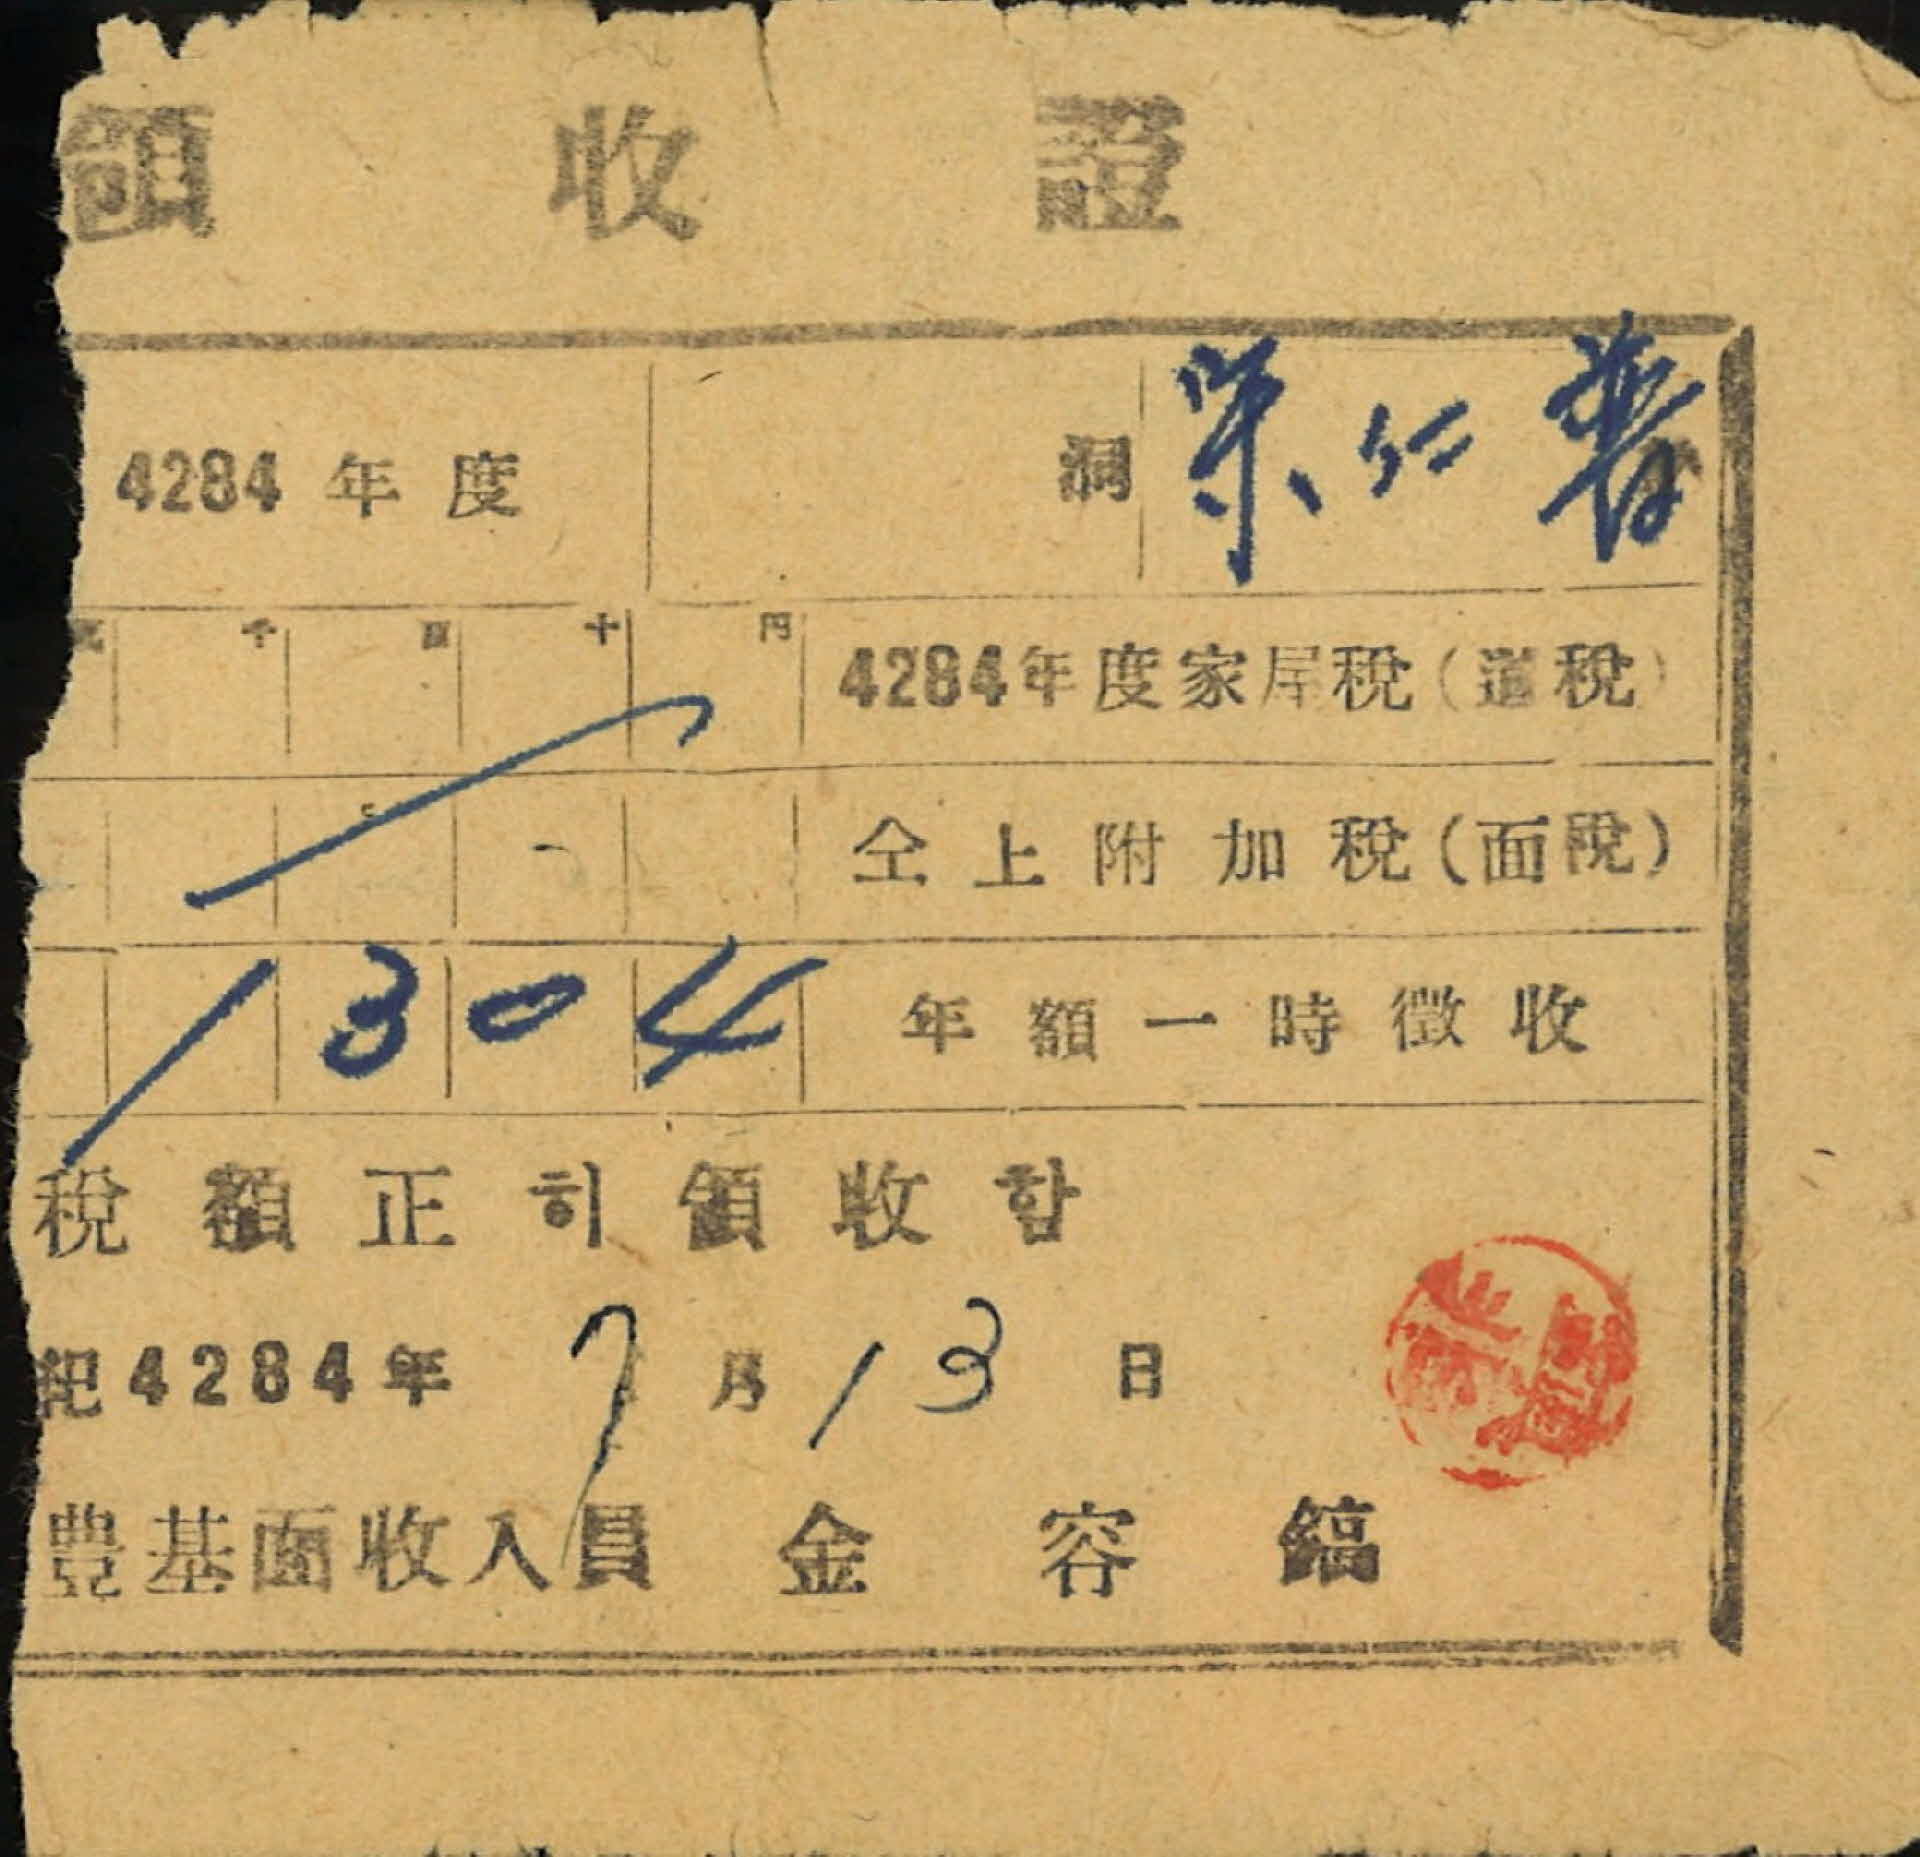 領收證
4284年度 洞
千 百 十 円 4284年度家屋稅(道稅)
仝上附加稅(面稅)
1304 年額一時徵收
稅額正히領收함
紀4284年 7月13日
豊基面收入員 金容鎬